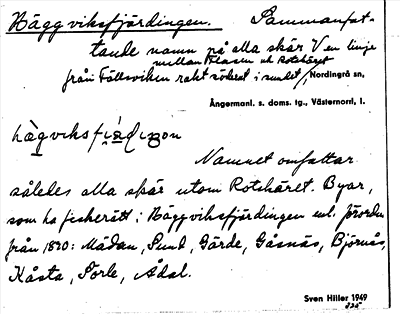 Häggviksfjärdingen. Sammanfat-
tande namn på alla skär V en linje
mellan Klasen och Rotskäret
från Fällsviken rakt söderut i sundet, Nordingrå sn,
Ångermanl. s. doms. tg., Västernorrl. l.
Namnet omfattar
således alla skär utom Rotskäret. Byar,
som ha fiskerätt i Häggviksfjärdingen enl. förordn.
från 1890: Mädan, Sund, Gärde, Gåsnäs, Björnås,
Kåsta, Sörle, Ådal.
Sven Hiller 1949